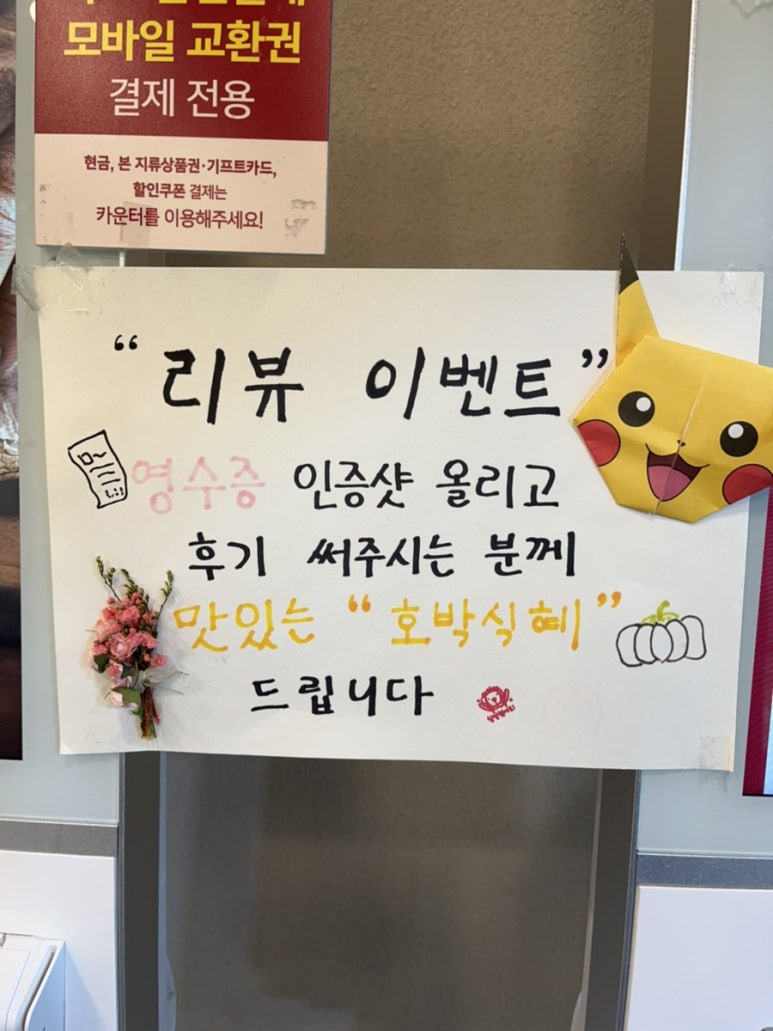 모바일 교환권
결제 전용
현금, 본 지류상품권·기프트카드,
할인쿠폰 결제는
카운터를 이용해주세요!
“리뷰 이벤트”
영수증 인증샷 올리고
후기 써주시는 분께
맛있는 “호박식혜”
드립니다